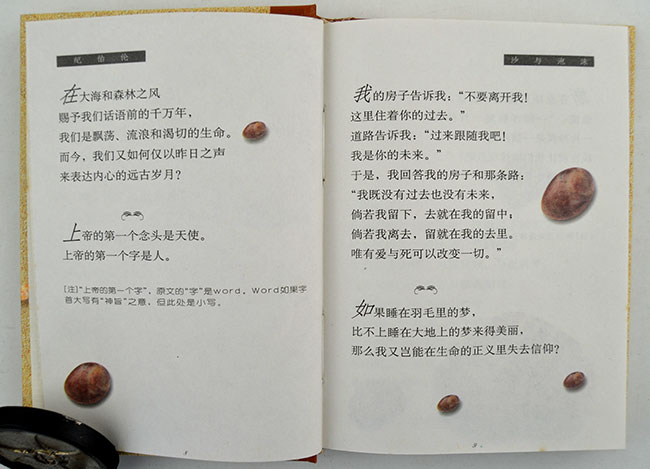 纪伯伦
在大海和森林之风
赐予我们话语前的千万年，
我们是飘荡、流浪和渴切的生命。
而今，我们又如何仅以昨日之声
来表达内心的远古岁月？
上帝的第一个念头是天使。
上帝的第一个字是人。
[注]“上帝的第一个字”，原文的“字”是word，Word如果字
首大写有“神旨”之意，但此处是小写。
沙与泡沫
我的房子告诉我：“不要离开我！
这里住着你的过去。”
道路告诉我：“过来跟随我吧！
我是你的未来。”
于是，我回答我的房子和那条路：
“我既没有过去也没有未来，
倘若我留下，去就在我的留中；
倘若我离去，留就在我的去里。
唯有爱与死可以改变一切。”
如果睡在羽毛里的梦，
比不上睡在大地上的梦来得美丽，
那么我又岂能在生命的正义里失去信仰？